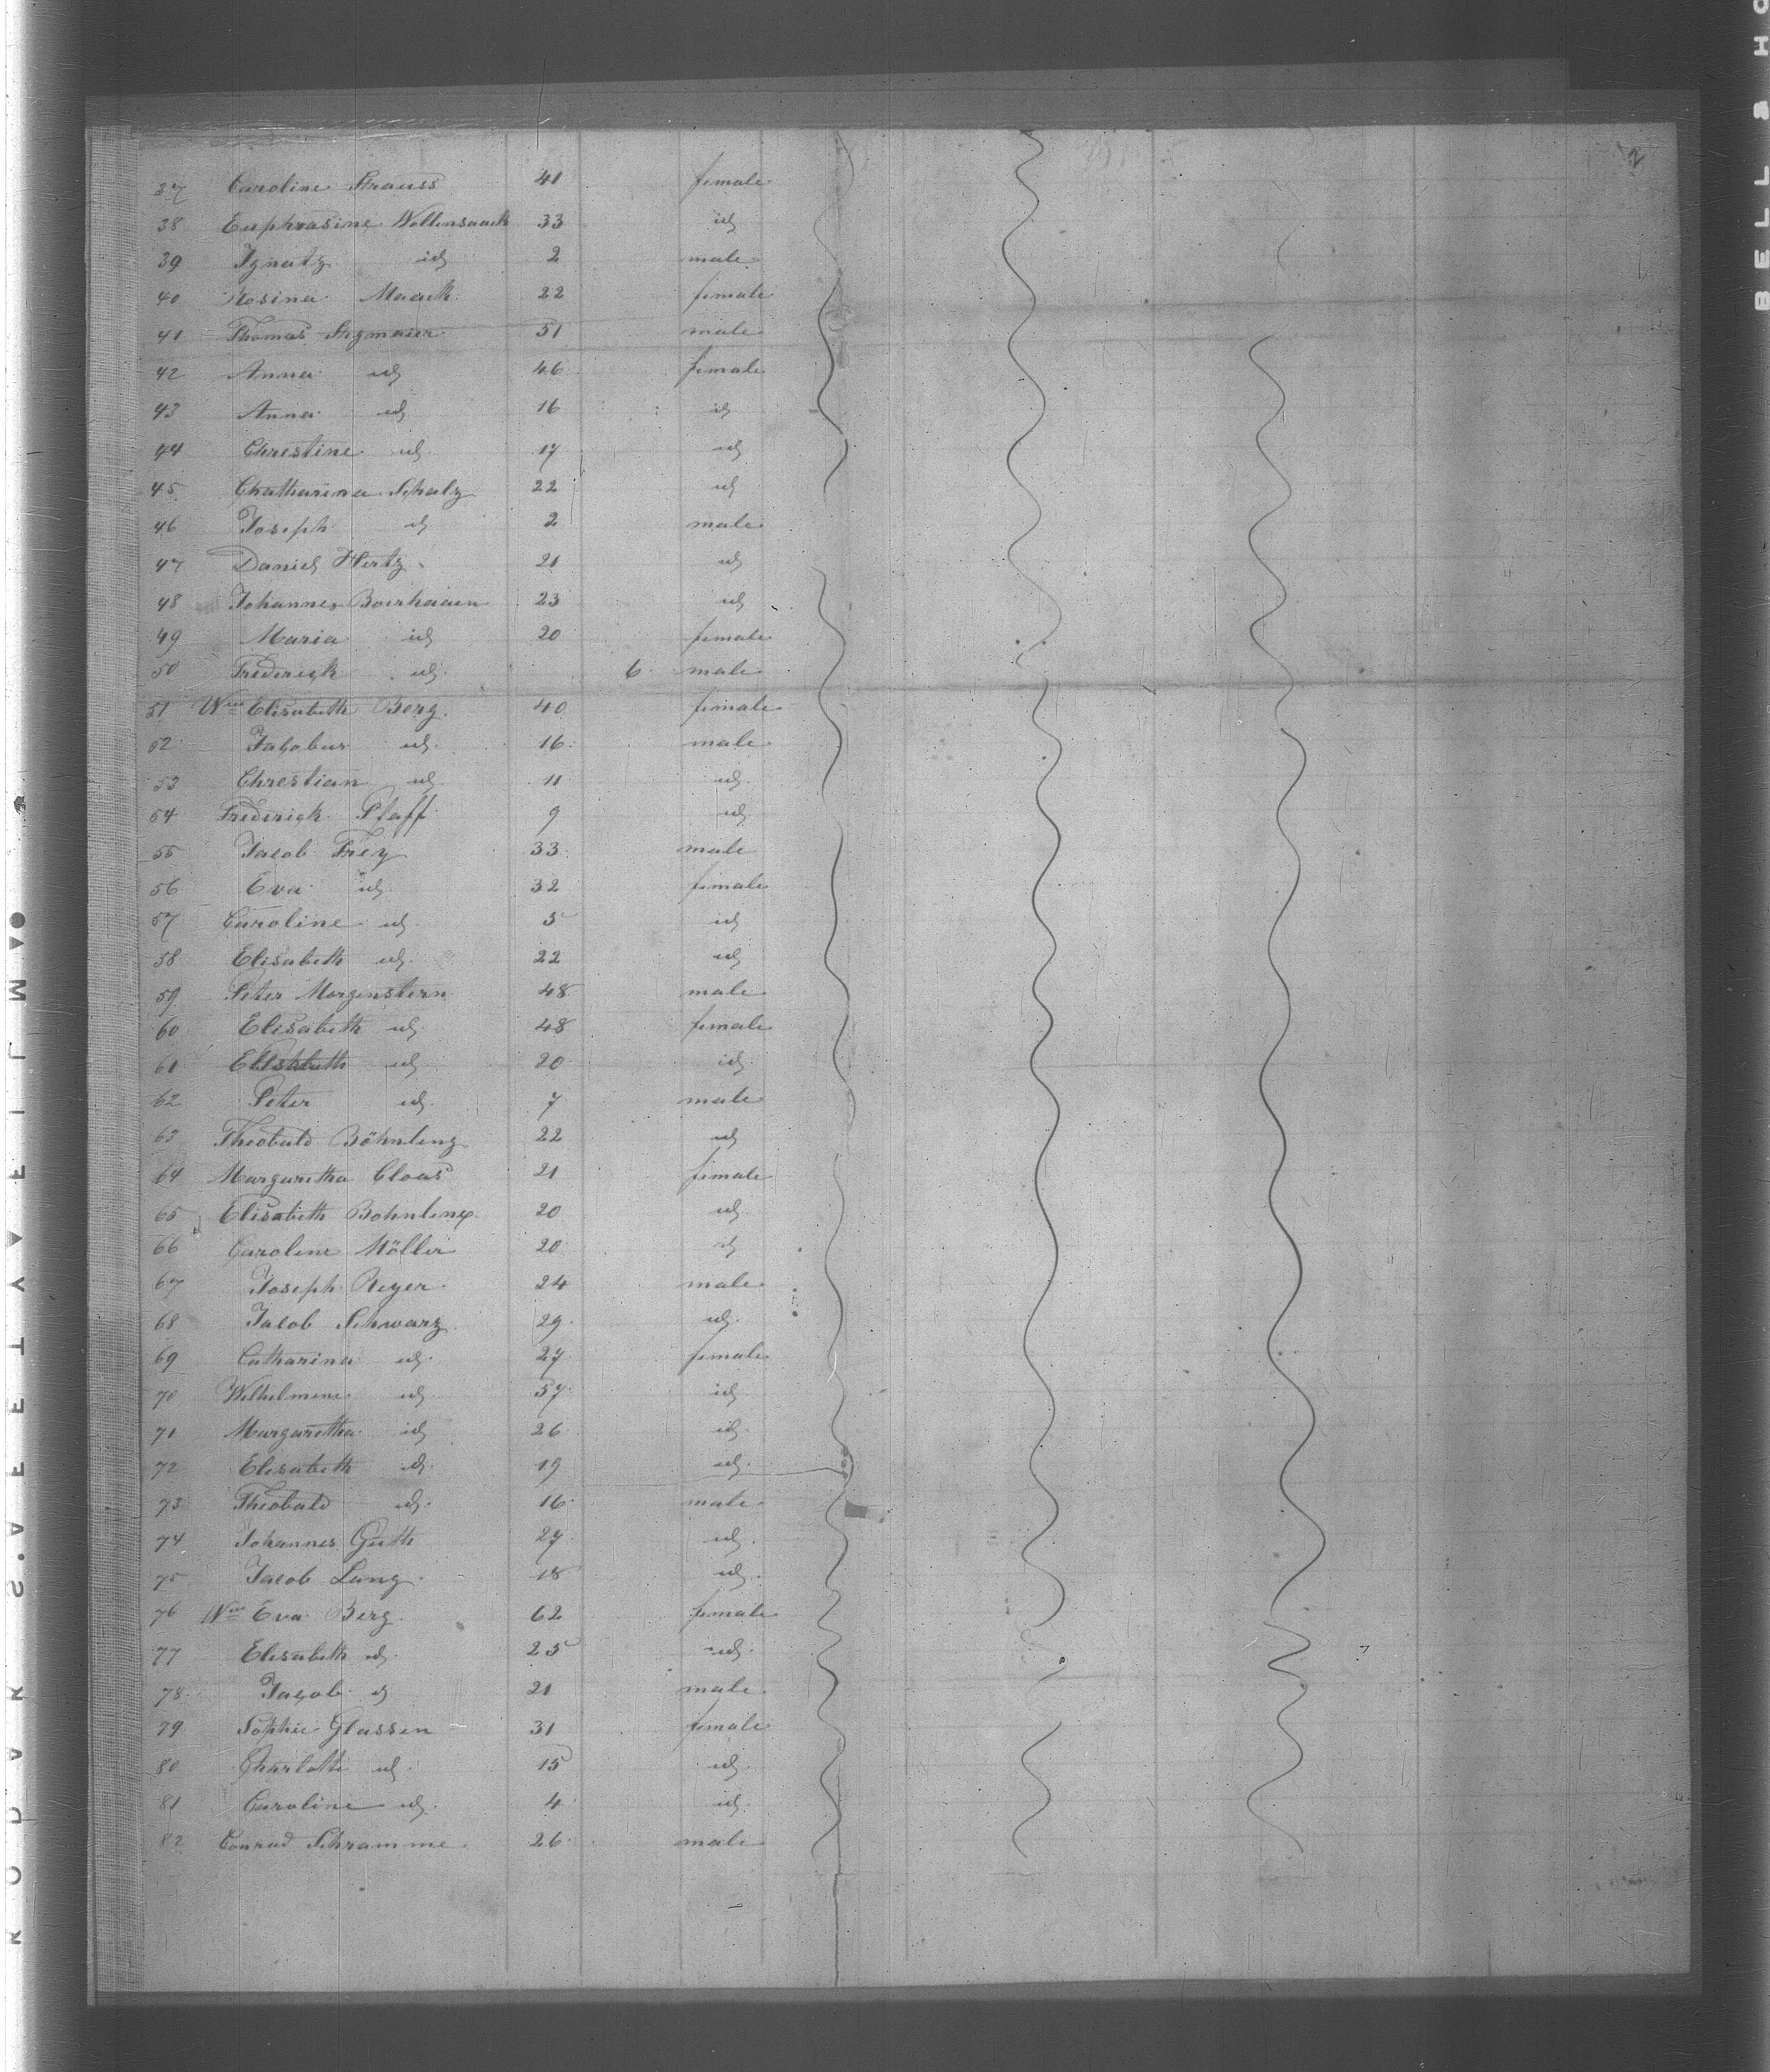 2
37 Caroline Strauss 41 female
38 Euphrasine Wollensaack 33 id
39 Ignatz id 2 male
40 Rosina Maack 22 female
41 Thomas Stegmaier 51 male
42 Anna id 46 female
43 Anna id 16 id
44 Christine id 17 id
45 Chatharina Schalz 22 id
46 Joseph id 2 male
47 Daniel Hertz 21 id
48 Johannes Boerhaaen 23 id
49 Maria id 20 female
50 Frederick id 6 male
51 Wwe Elisabeth Berg 40 female
52 Jacobus id 16 male
53 Christian id 11 id
54 Frederick Pfaff 9 id
55 Jacob Frey 33 male
56 Eva id 32 female
57 Caroline id 5 id
58 Elisabeth id 22 id
59 Peter Morgenstern 48 male
60 Elisabeth id 48 female
61 Elisabeth id 20 id
62 Peter id 7 male
63 Theobald Böhnleng 22 id
64 Margaretha Cloas 21 female
65 Elisabeth Bohnleng 20 id
66 Caroline Möller 20 id
67 Joseph Reyer 24 male
68 Jacob Schwarz 29 id
69 Catharina id 27 female
70 Wilhelmine id 57 id
71 Margaretha id 26 id
72 Elisabeth id 19 id
73 Theobald id 16 male
74 Johannes Guth 27 id
75 Jacob Lang 18 id
76 Wwe Eva Berg 62 female
77 Elisabeth id 25 id
78 Jacob id 21 male
79 Sophie Glassen 31 female
80 Charlotte id 15 id
81 Caroline id 4 id
82 Conrad Schramme 26 male